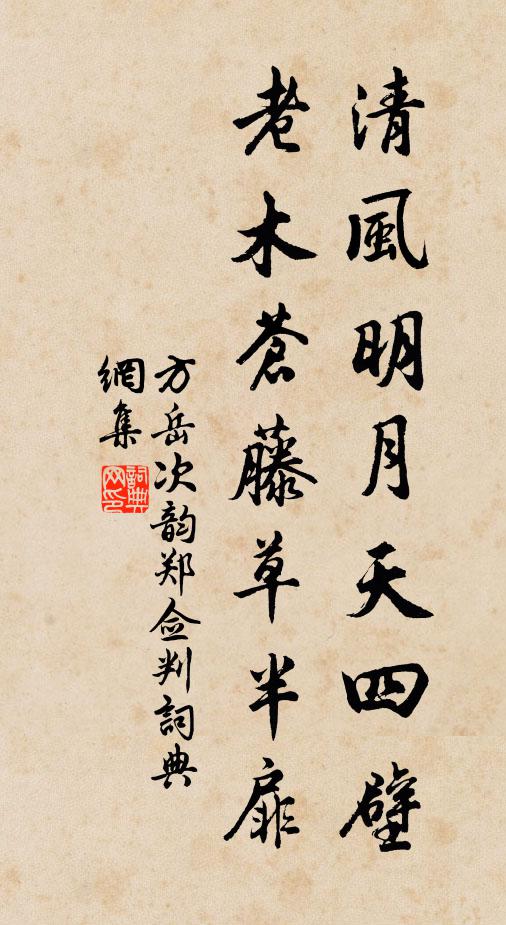 清風明月天四壁
老木蒼藤草半扉
方岳次韵郑佥判詞典
網集
詞典网印